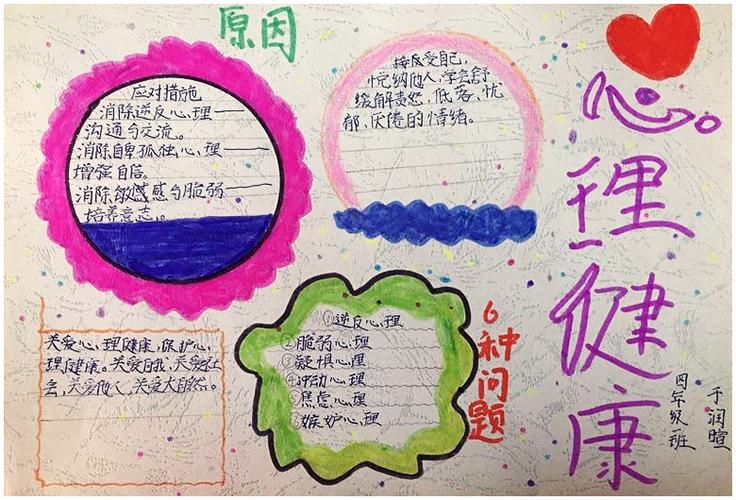 原因
应对措施
消除逆反心理——
沟通与交流。
消除自卑孤独心理——
增强自信。
消除敏感感与脆弱——
培养意志。
接反受自己,
悦纳他人,学会舒
缓解责怨,低落、忧
郁、厌倦的情绪。
心理健康
四年级一班
于润暄
关爱心理健康,保护心
理健康。关爱自我,关爱社
会,关爱他人,关爱大自然。
6种问题
①逆反心理
②脆弱心理
③疑惧心理
④冲动心理
⑤焦虑心理
⑥嫉妒心理